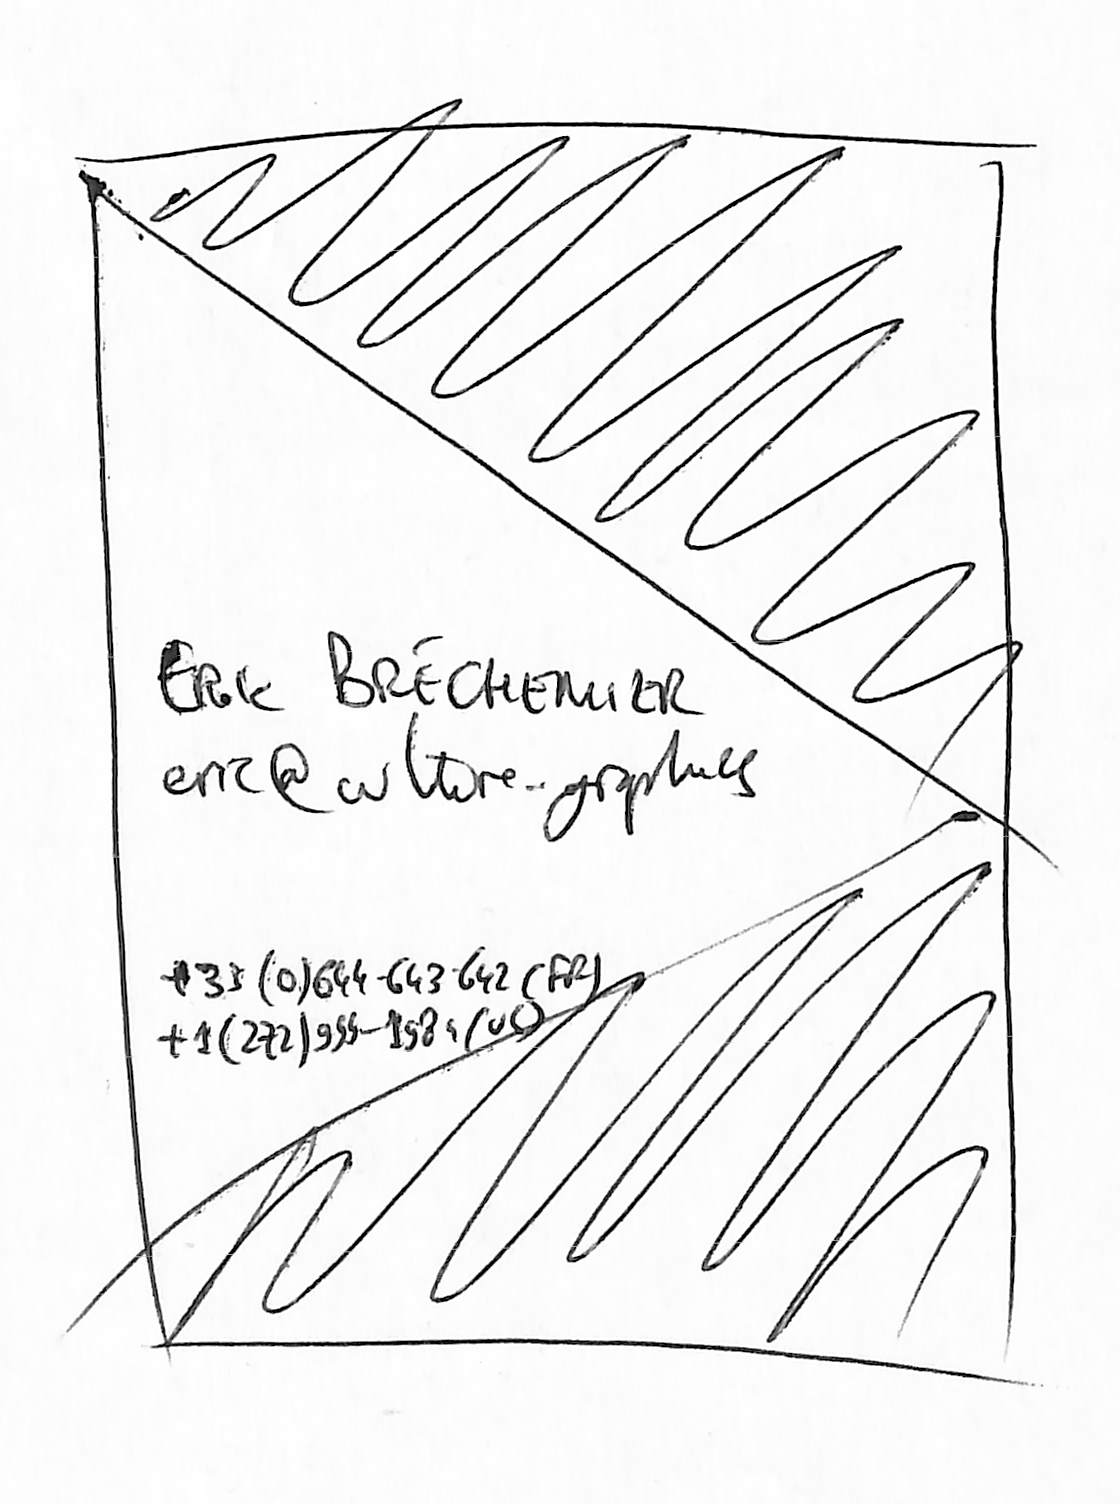 ERIC BRÉCHEMIER
eric@culture-graphics
+33 (0)644-643-642 (FR)
+1(272)